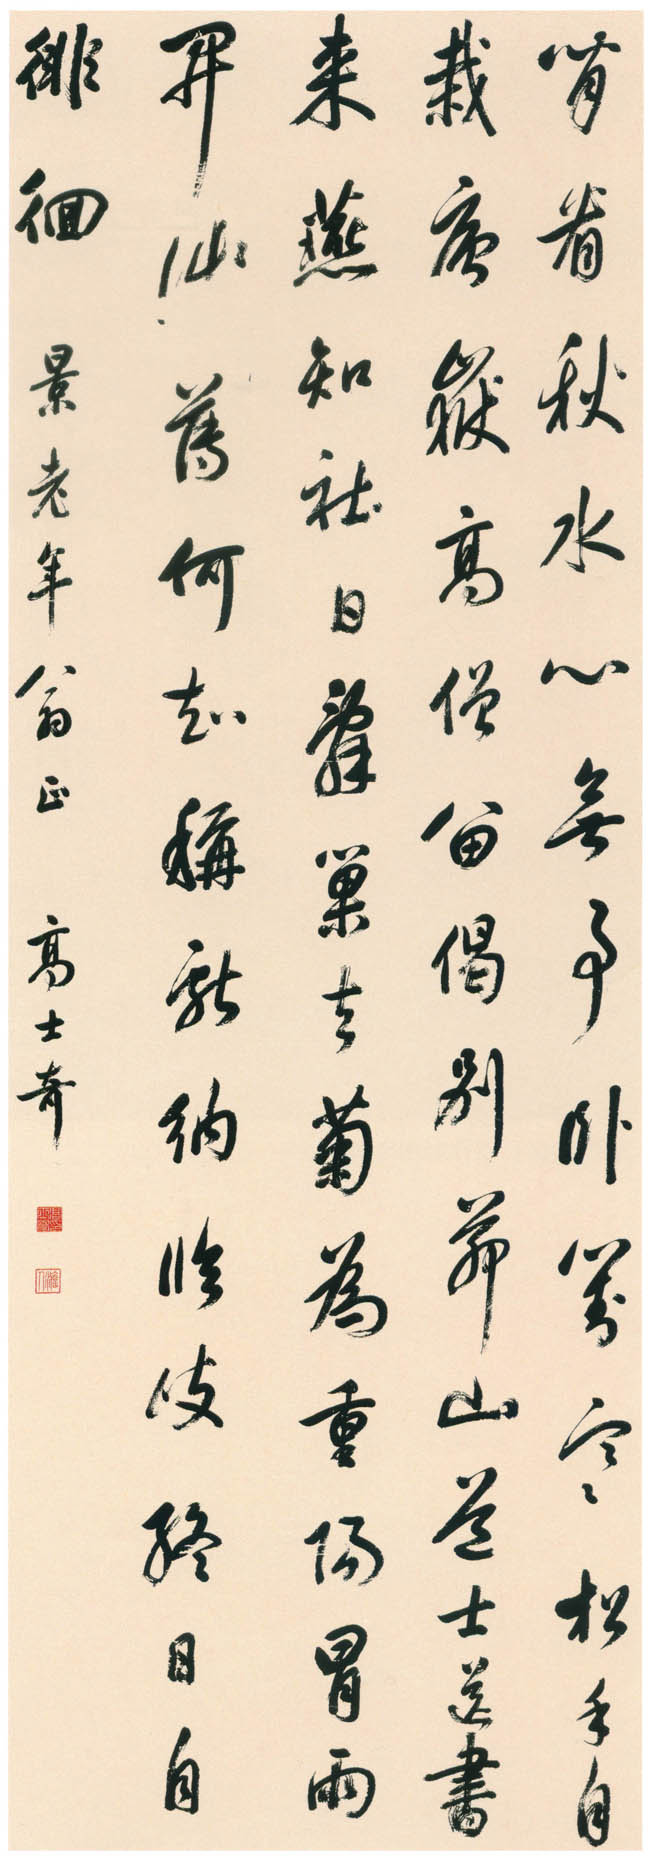 閒看秋水心無事卧對寒松手自
栽廬嶽高僧留偈別茅山道士送書
来燕知社日辭巢去菊為重陽冒雨
開仙舊何稱獻納臨岐終日自
徘徊 景老年翁正 高士奇